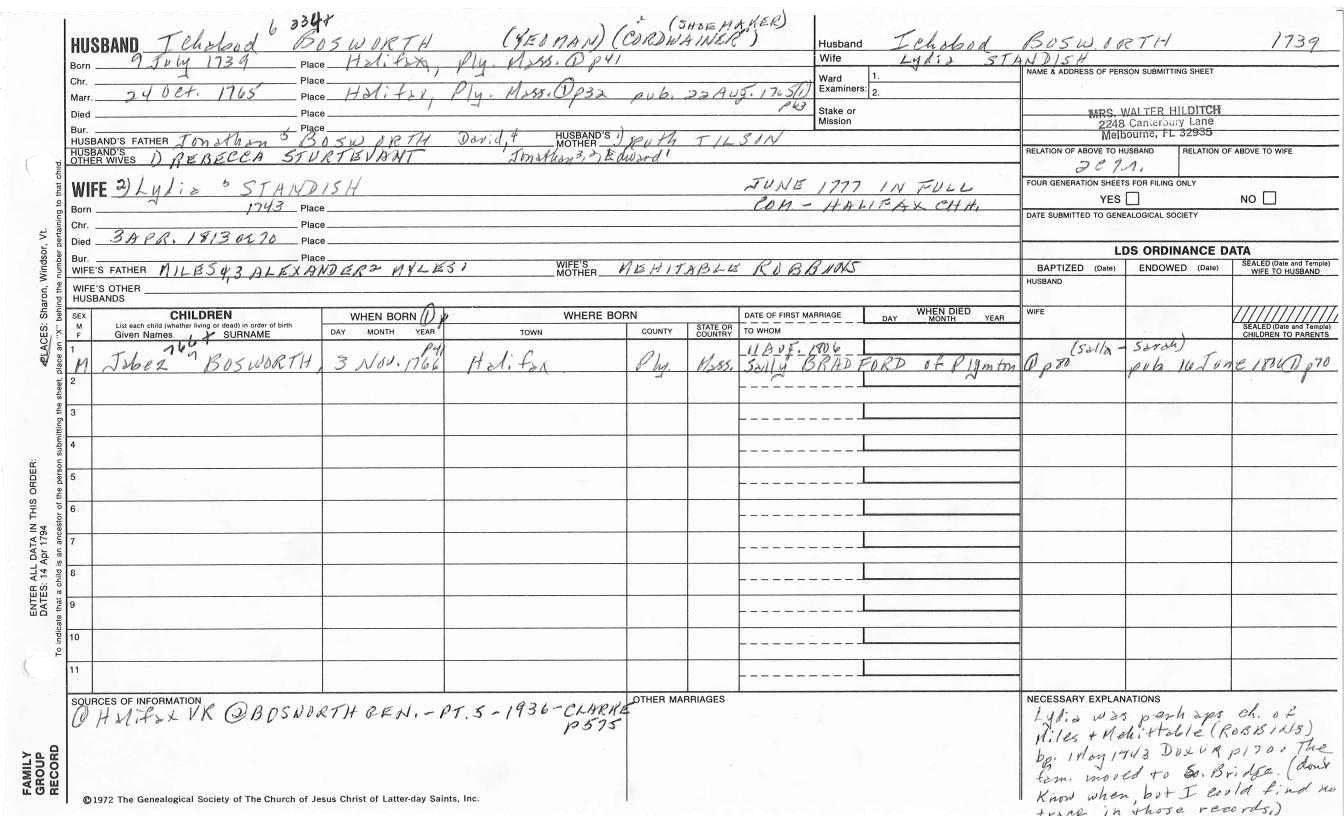 6 334+ 2 (SHOEMAKER)
HUSBAND Ichabod BOSWORTH (YEOMAN) (CORDWAINER)
Born 9 July 1739 Place Halifax, Ply. Mass. ① p41
Chr. Place
Marr. 24 Oct. 1765 Place Halifax, Ply. Mass. ① p32 pub. 22 Aug. 1765 ①
p63
Died Place
Bur. Place
HUSBAND'S FATHER Jonathan 5 BOSWORTH David,4 HUSBAND'S MOTHER 1) Ruth TILSIN
HUSBAND'S OTHER WIVES 1) REBECCA STURTEVANT Jonathan 3, 2, Edward 1
WIFE 2) Lydia 5 STANDISH JUNE 1777 IN FULL
Born 1743 Place COM - HALIFAX CHH.
Chr. Place
Died 3 APR. 1813 ae 70 Place
Bur. Place
WIFE'S FATHER MILES 4,3 ALEXANDER 2 MYLES 1 WIFE'S MOTHER MEHITABLE ROBBINS
WIFE'S OTHER HUSBANDS
Husband Ichabod BOSWORTH 1739
Wife Lydia STANDISH
Ward Examiners: 1.
2.
Stake or Mission
NAME & ADDRESS OF PERSON SUBMITTING SHEET
MRS. WALTER HILDITCH
2248 Canterbury Lane
Melbourne, FL 32935
RELATION OF ABOVE TO HUSBAND RELATION OF ABOVE TO WIFE
FOUR GENERATION SHEETS FOR FILING ONLY
YES NO
DATE SUBMITTED TO GENEALOGICAL SOCIETY
LDS ORDINANCE DATA
BAPTIZED (Date) ENDOWED (Date) SEALED (Date and Temple) WIFE TO HUSBAND
HUSBAND
WIFE
SEALED (Date and Temple) CHILDREN TO PARENTS
SEX M F CHILDREN WHEN BORN ① p WHERE BORN DATE OF FIRST MARRIAGE WHEN DIED
List each child (whether living or dead) in order of birth
Given Names SURNAME DAY MONTH YEAR TOWN COUNTY STATE OR COUNTRY TO WHOM DAY MONTH YEAR
1 766+ p41 11 Aug. 1806 (Salla - Sarah)
M Jabez 7 BOSWORTH, 3 Nov. 1766 Halifax Ply. Mass. Sally BRADFORD of Plymton ① p80 pub 16 June 1806 ① p70
2
3
4
5
6
7
8
9
10
11
SOURCES OF INFORMATION
① Halifax VR ② BOSWORTH GEN. - PT. 5 - 1936 - CLARKE
p575
OTHER MARRIAGES
NECESSARY EXPLANATIONS
Lydia was perhaps ch. of
Miles + Mehittable (ROBBINS)
bp. 1 May 1743 Dux VR p170. The
fam. moved to So. Bridge. (don't
know when, but I could find no
trace in those records.)
©1972 The Genealogical Society of The Church of Jesus Christ of Latter-day Saints, Inc.
FAMILY GROUP RECORD
ENTER ALL DATA IN THIS ORDER:
DATES: 14 Apr 1794
PLACES: Sharon, Windsor, Vt.
To indicate that a child is an ancestor of the person submitting the sheet, place an "X" behind the number pertaining to that child.